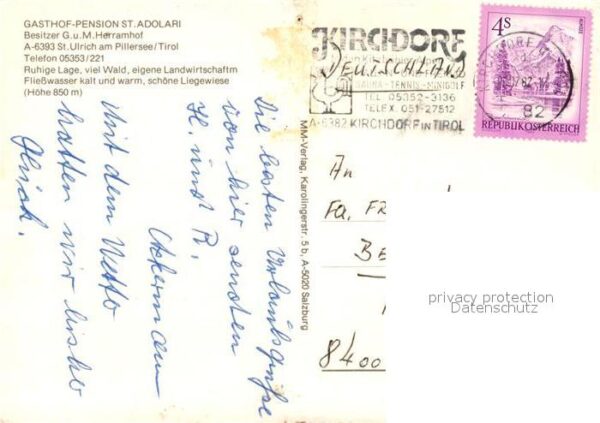 GASTHOF-PENSION ST. ADOLARI
Besitzer G. u. M. Herramhof
A-6393 St. Ulrich am Pillersee/Tirol
Telefon 05353/221
Ruhige Lage, viel Wald, eigene Landwirtschaftm
Fließwasser kalt und warm, schöne Liegewiese
(Höhe 850 m)
KIRCHDORF
DEUTSCHLAND
SAUNA-TENNIS-MINIGOLF
TEL 05352-3136
TELEX 051-27512
A-6382 KIRCHDORF IN TIROL
4S
82
REPUBLIK ÖSTERREICH
Die besten Urlaubsgrüße
von hier senden
H. und R.
Ackermann
Mit dem Wetter
hatten wir bisher
Glück.
MM-Verlag, Karolingerstr. 5 b, A-5020 Salzburg
An
Fa. FR
BE
8400
privacy protection
Datenschutz